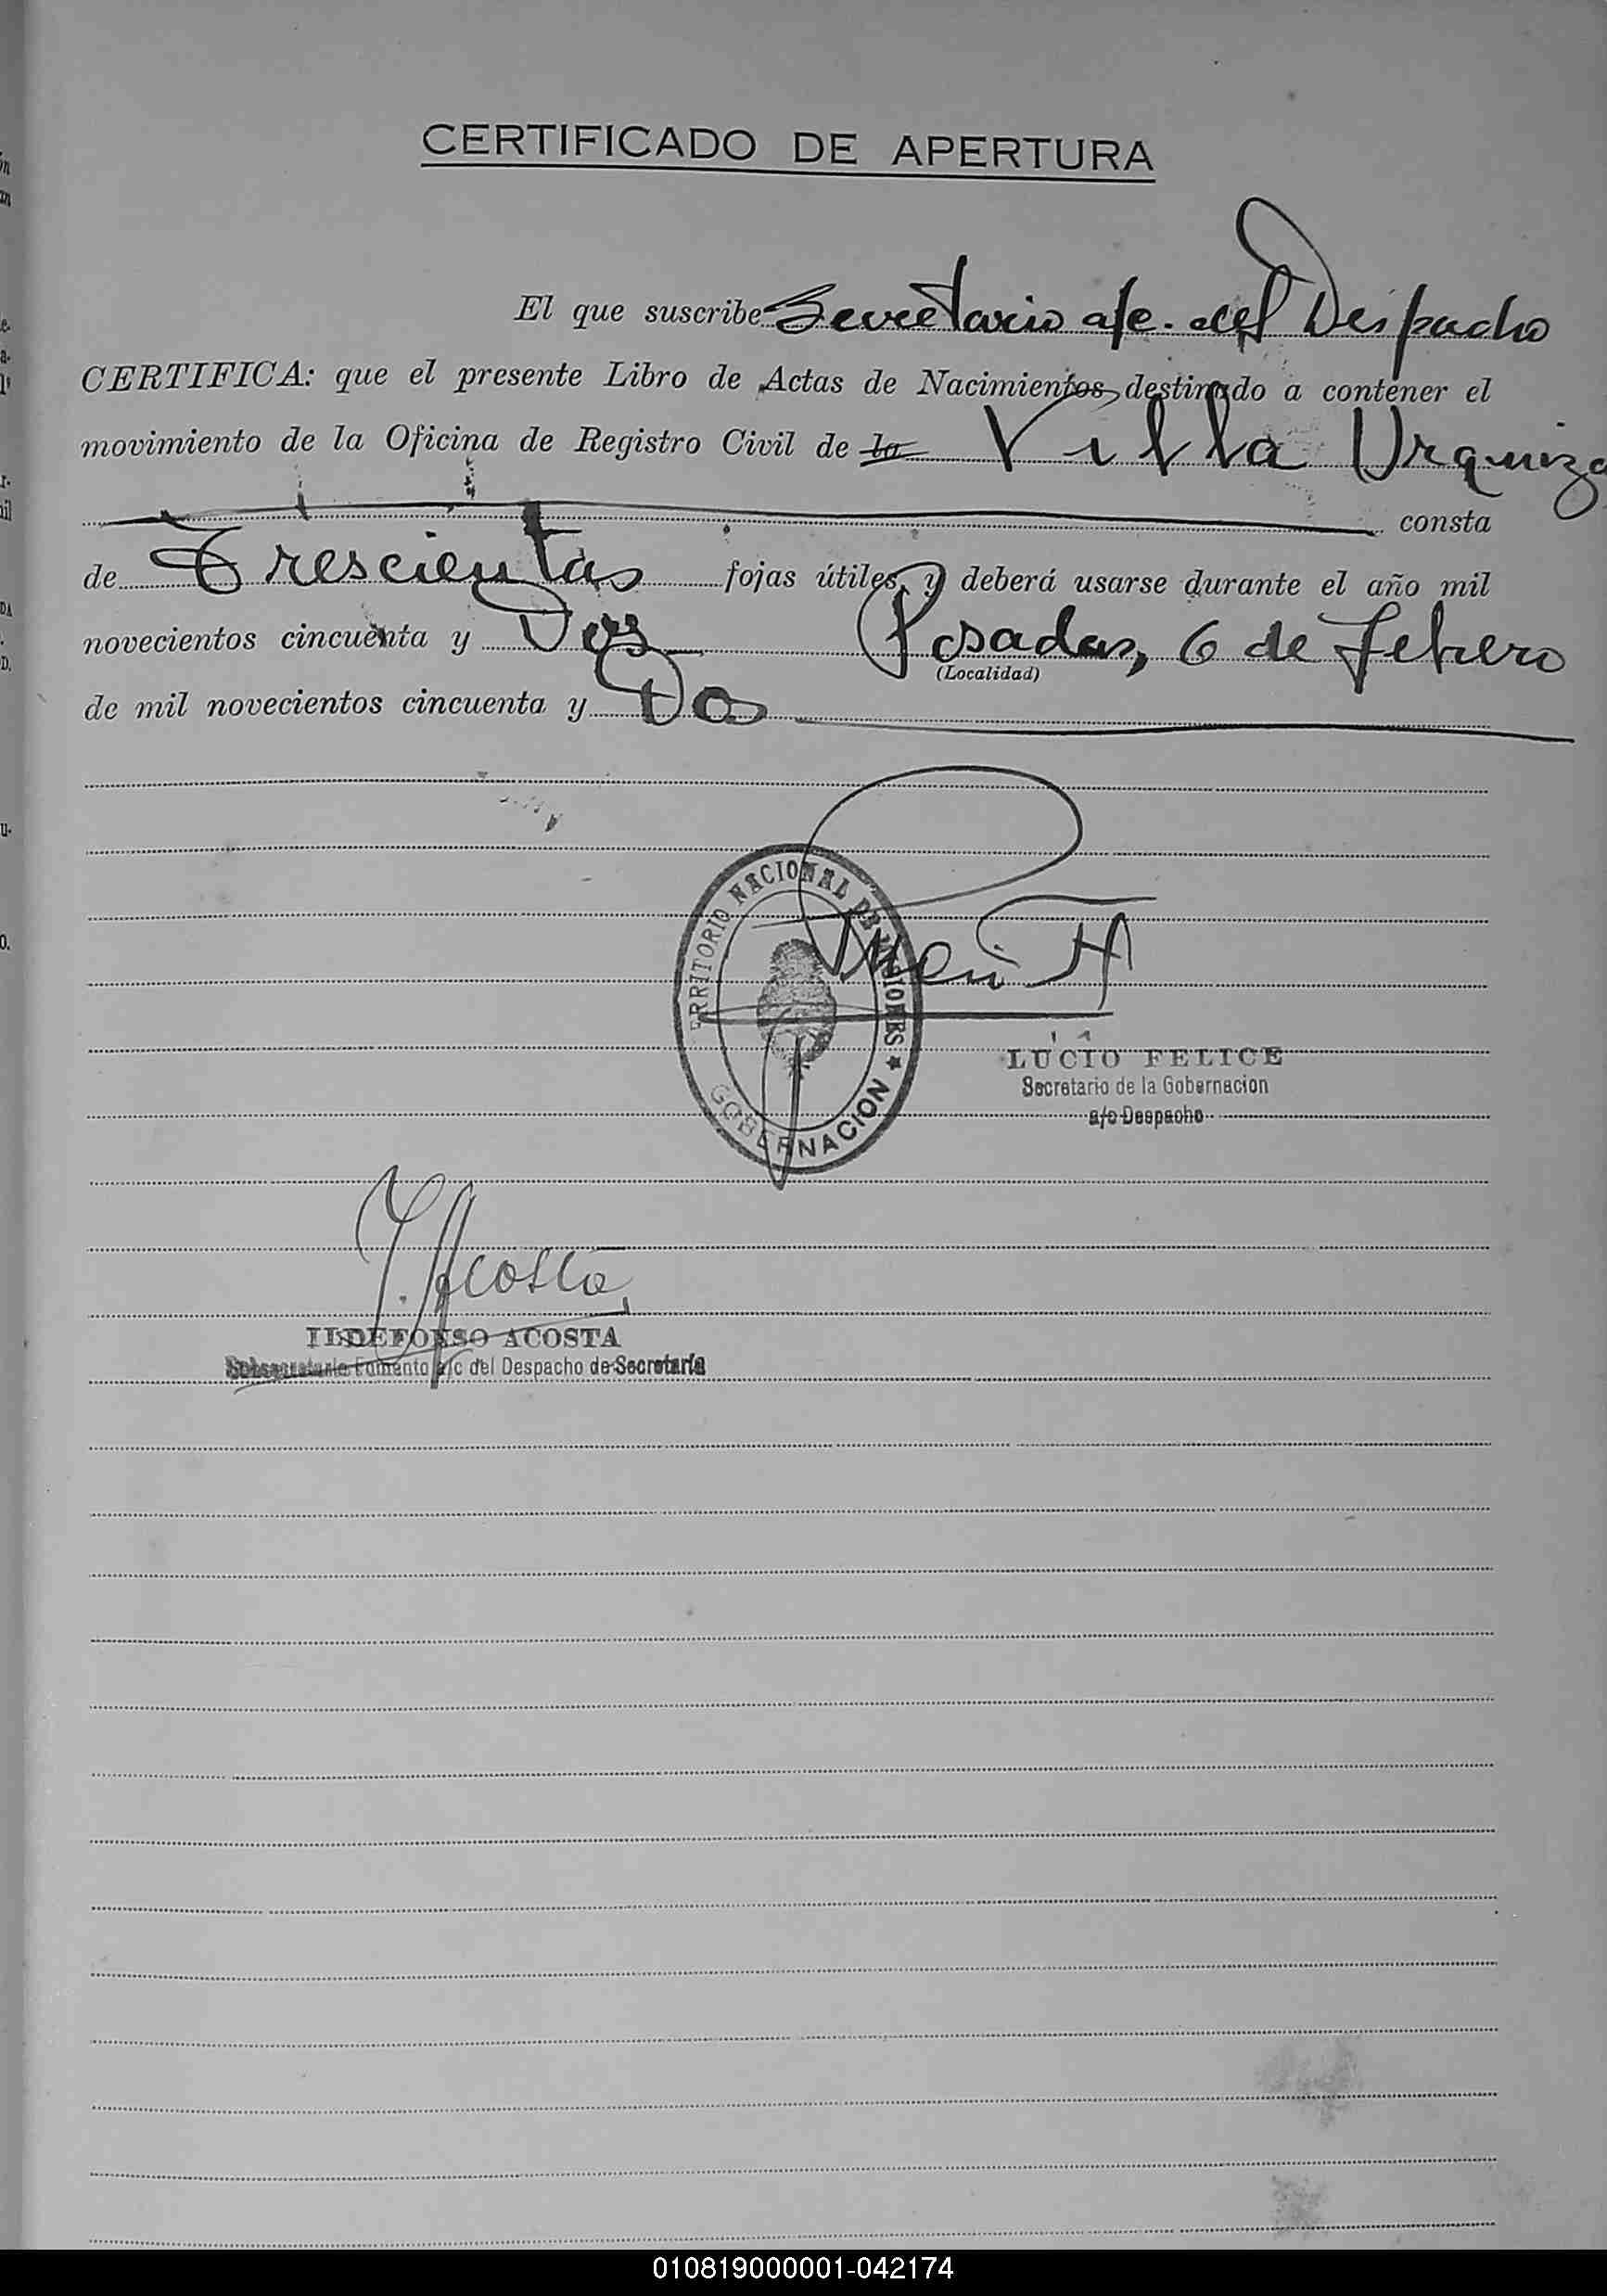 CERTIFICADO DE APERTURA
El que suscribe Secretario a/c. del Despacho
CERTIFICA: que el presente Libro de Actas de Nacimientos destinado a contener el
movimiento de la Oficina de Registro Civil de la Villa Urquiza
consta
de Trescientas fojas útiles, y deberá usarse durante el año mil
novecientos cincuenta y Dos Posadas, 6 de febrero
(Localidad)
de mil novecientos cincuenta y Dos
TERRITORIO NACIONAL DE MISIONES
GOBERNACION
LUCIO FELICE
Secretario de la Gobernacion
a/c Despacho
I. Acosta
ILDEFONSO ACOSTA
Subsecretario Fomento a/c del Despacho de Secretaría
010819000001-042174